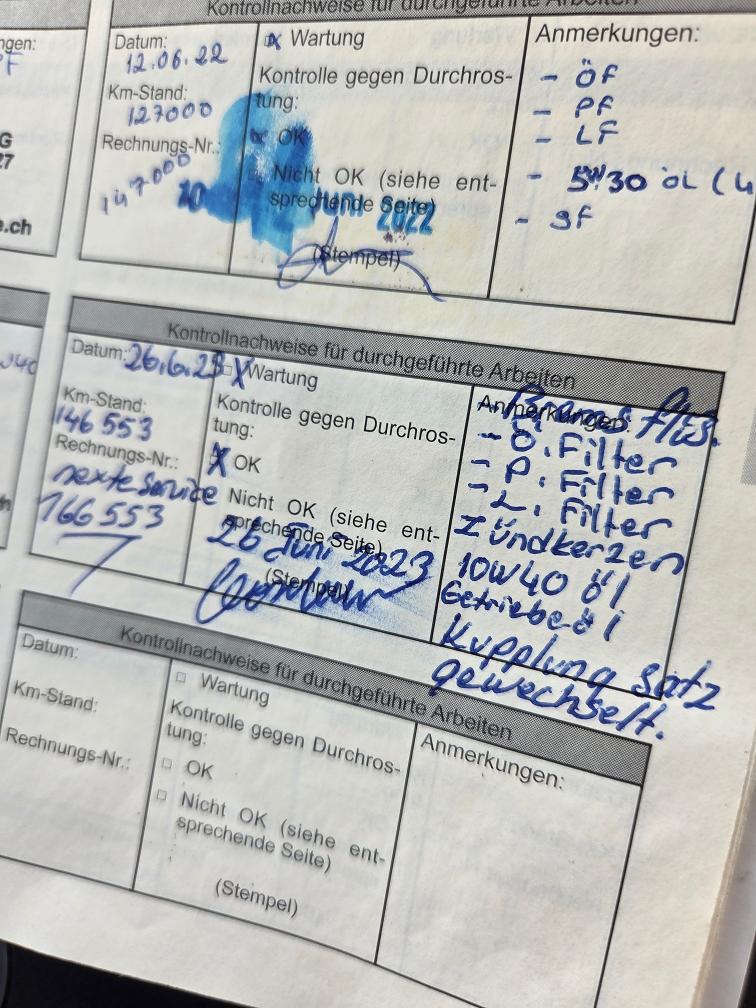 Kontrollnachweise für durchgeführte Arbeiten
ngen:
PF
G
27
e.ch
Datum:
12.06.22
Km-Stand:
127000
Rechnungs-Nr.:
147000
x Wartung
Kontrolle gegen Durchros-
tung:
OK
Nicht OK (siehe ent-
sprechende Seite)
10. Juni 2022
(Stempel)
Anmerkungen:
- ÖF
- PF
- LF
- 5W30 ÖL (
- SF
Kontrollnachweise für durchgeführte Arbeiten
Datum: 26.6.23
Km-Stand:
146 553
Rechnungs-Nr.:
nexte Service
166 553
X Wartung
Kontrolle gegen Durchros-
tung:
X OK
Nicht OK (siehe ent-
sprechende Seite)
26 Juni 2023
(Stempel)
Brems flüs.
Anmerkungen:
- Ö. Filter
- P. Filter
- L. Filter
Zündkerzen
10W40 Öl
Getriebeöl
Kupplung satz
gewechselt.
Kontrollnachweise für durchgeführte Arbeiten
Datum:
Km-Stand:
Rechnungs-Nr.:
Wartung
Kontrolle gegen Durchros-
tung:
OK
Nicht OK (siehe ent-
sprechende Seite)
(Stempel)
Anmerkungen: